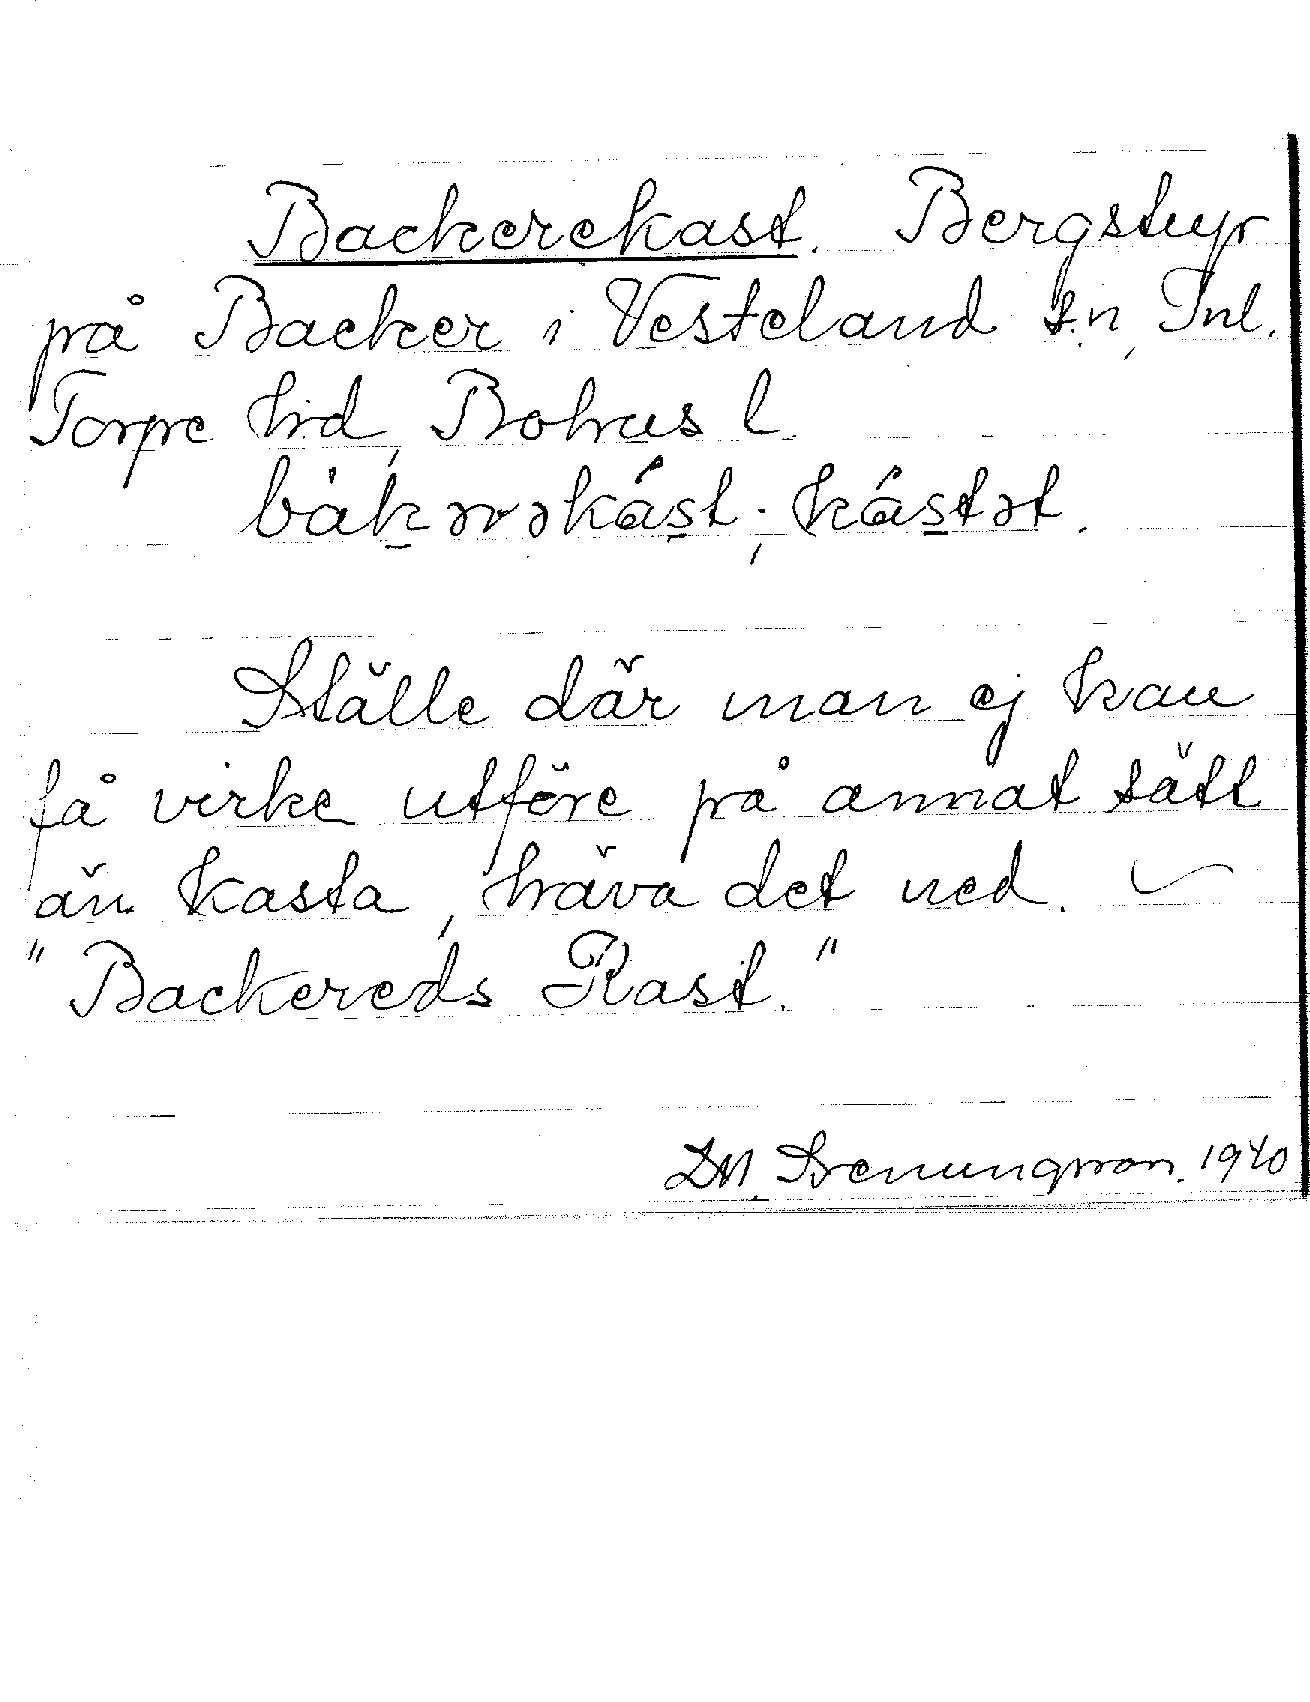 Backerekast. Bergstup
på Backer i Vesteland s.n, Inl.
Torpe hrd, Bohus l.
båkərəkást; kástət.
Ställe där man ej kan
få virke utföre på annat sätt
än kasta, häva det ned.
"Backereds Kast."
1940